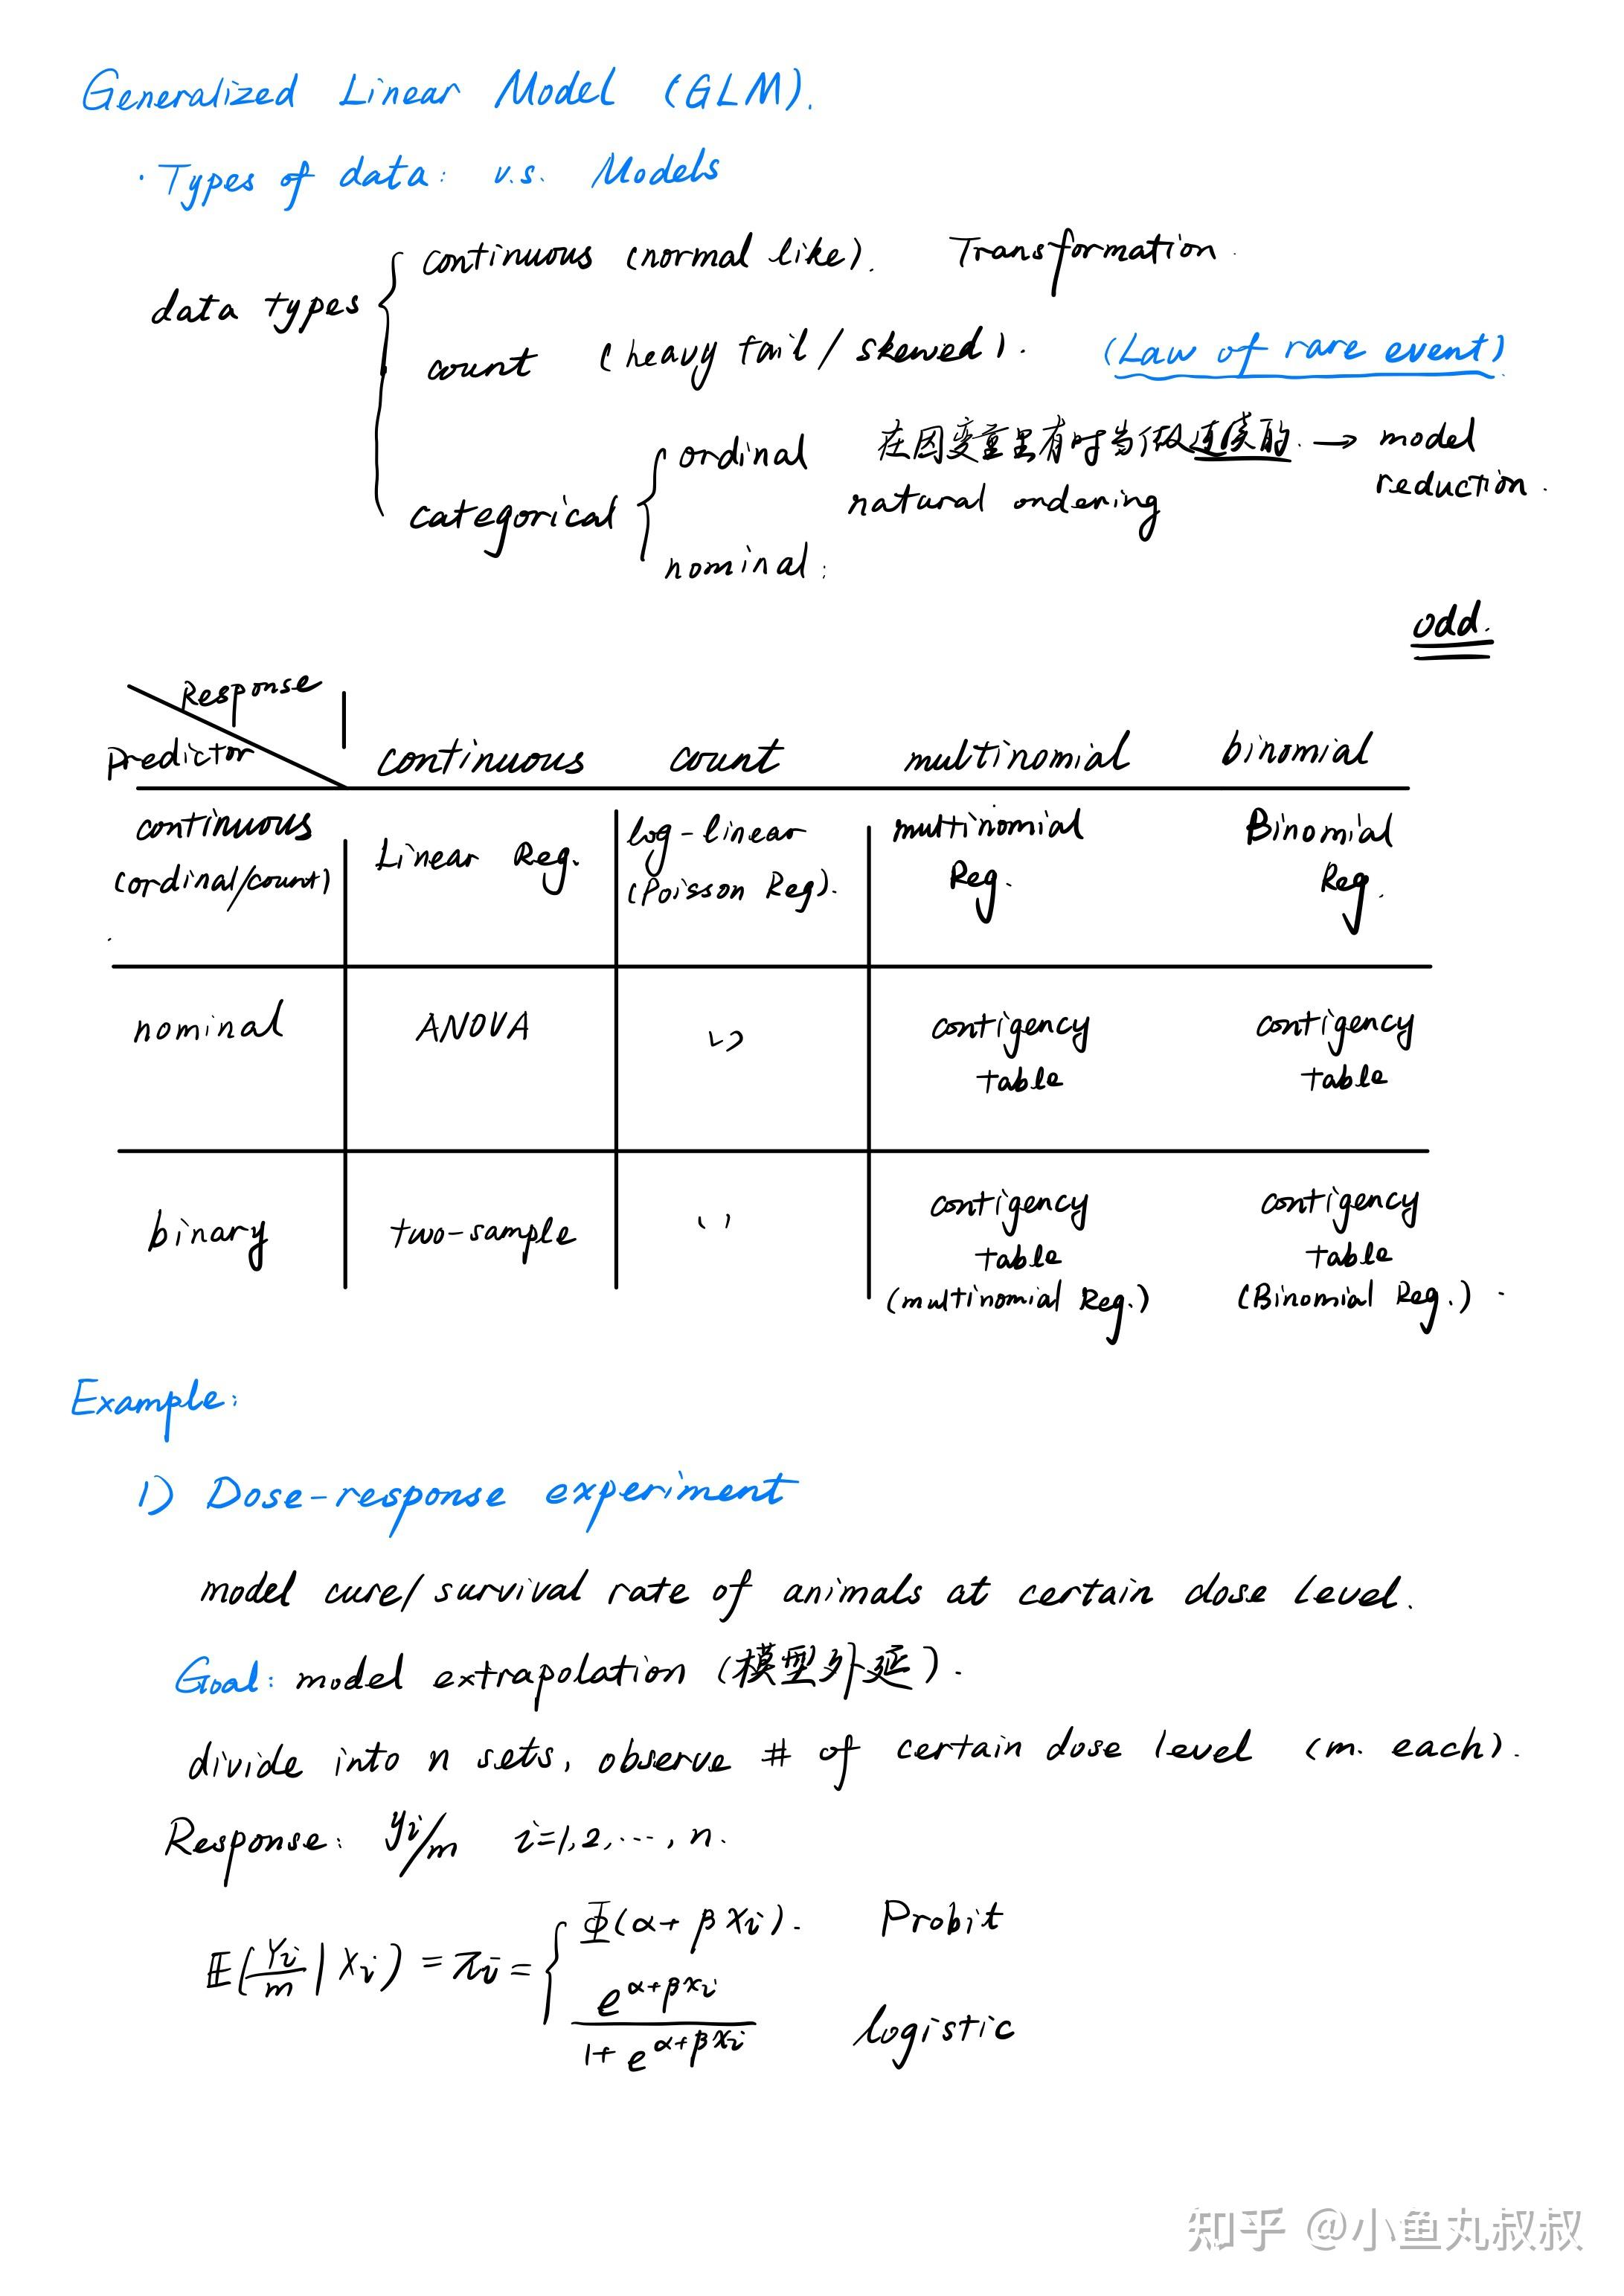 Generalized Linear Model (GLM).
· Types of data: v.s. Models
continuous (normal like). Transformation.
data types
count (heavy tail / skewed). (Law of rare event)
ordinal 在因变量里有时当做连续的. → model
natural ordering reduction.
categorical
nominal:
odd.
Response
Predictor continuous count multinomial binomial
continuous Linear Reg. log-linear multinomial Binomial
(ordinal/count) (Poisson Reg). Reg. Reg.
nominal ANOVA ʻʼ contigency contigency
table table
binary two-sample ʻʼ contigency contigency
table table
(multinomial Reg.) (Binomial Reg.)
Example:
1) Dose-response experiment
model cure/survival rate of animals at certain dose level.
Goal: model extrapolation (模型外延).
divide into n sets, observe # of certain dose level (m. each).
Response: yi/m i=1,2,···,n.
Φ(α+βxi). Probit
E(Yi/m | Xi) = πi =
e^(α+βxi) / 1+e^(α+βxi) logistic
知乎 @小鱼丸叔叔